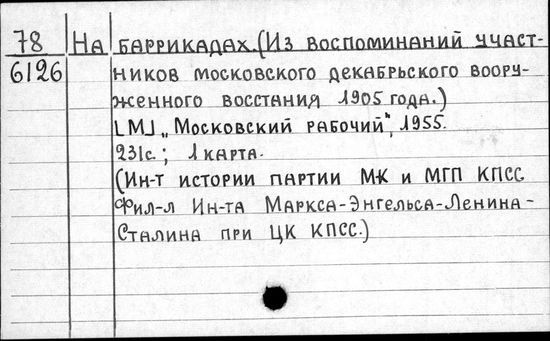 78 На баррикадах. (Из воспоминаний участ-
6126 ников московского декабрьского воору-
женного восстания 1905 года.)
[М] „Московский рабочий", 1955.
231с.; 1 карта.
(Ин-т истории партии МК и МГП КПСС
Фил-л Ин-та Маркса-Энгельса-Ленина-
Сталина при ЦК КПСС.)